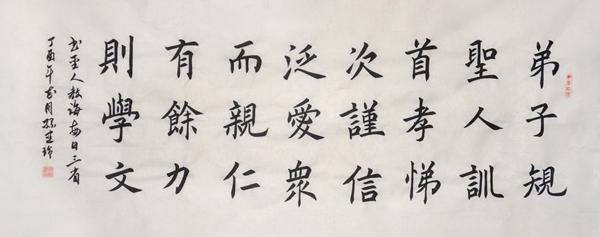 弟子規
聖人訓
首孝悌
次謹信
泛愛衆
而親仁
有餘力
則學文
书圣人教诲每日三省
丁酉年